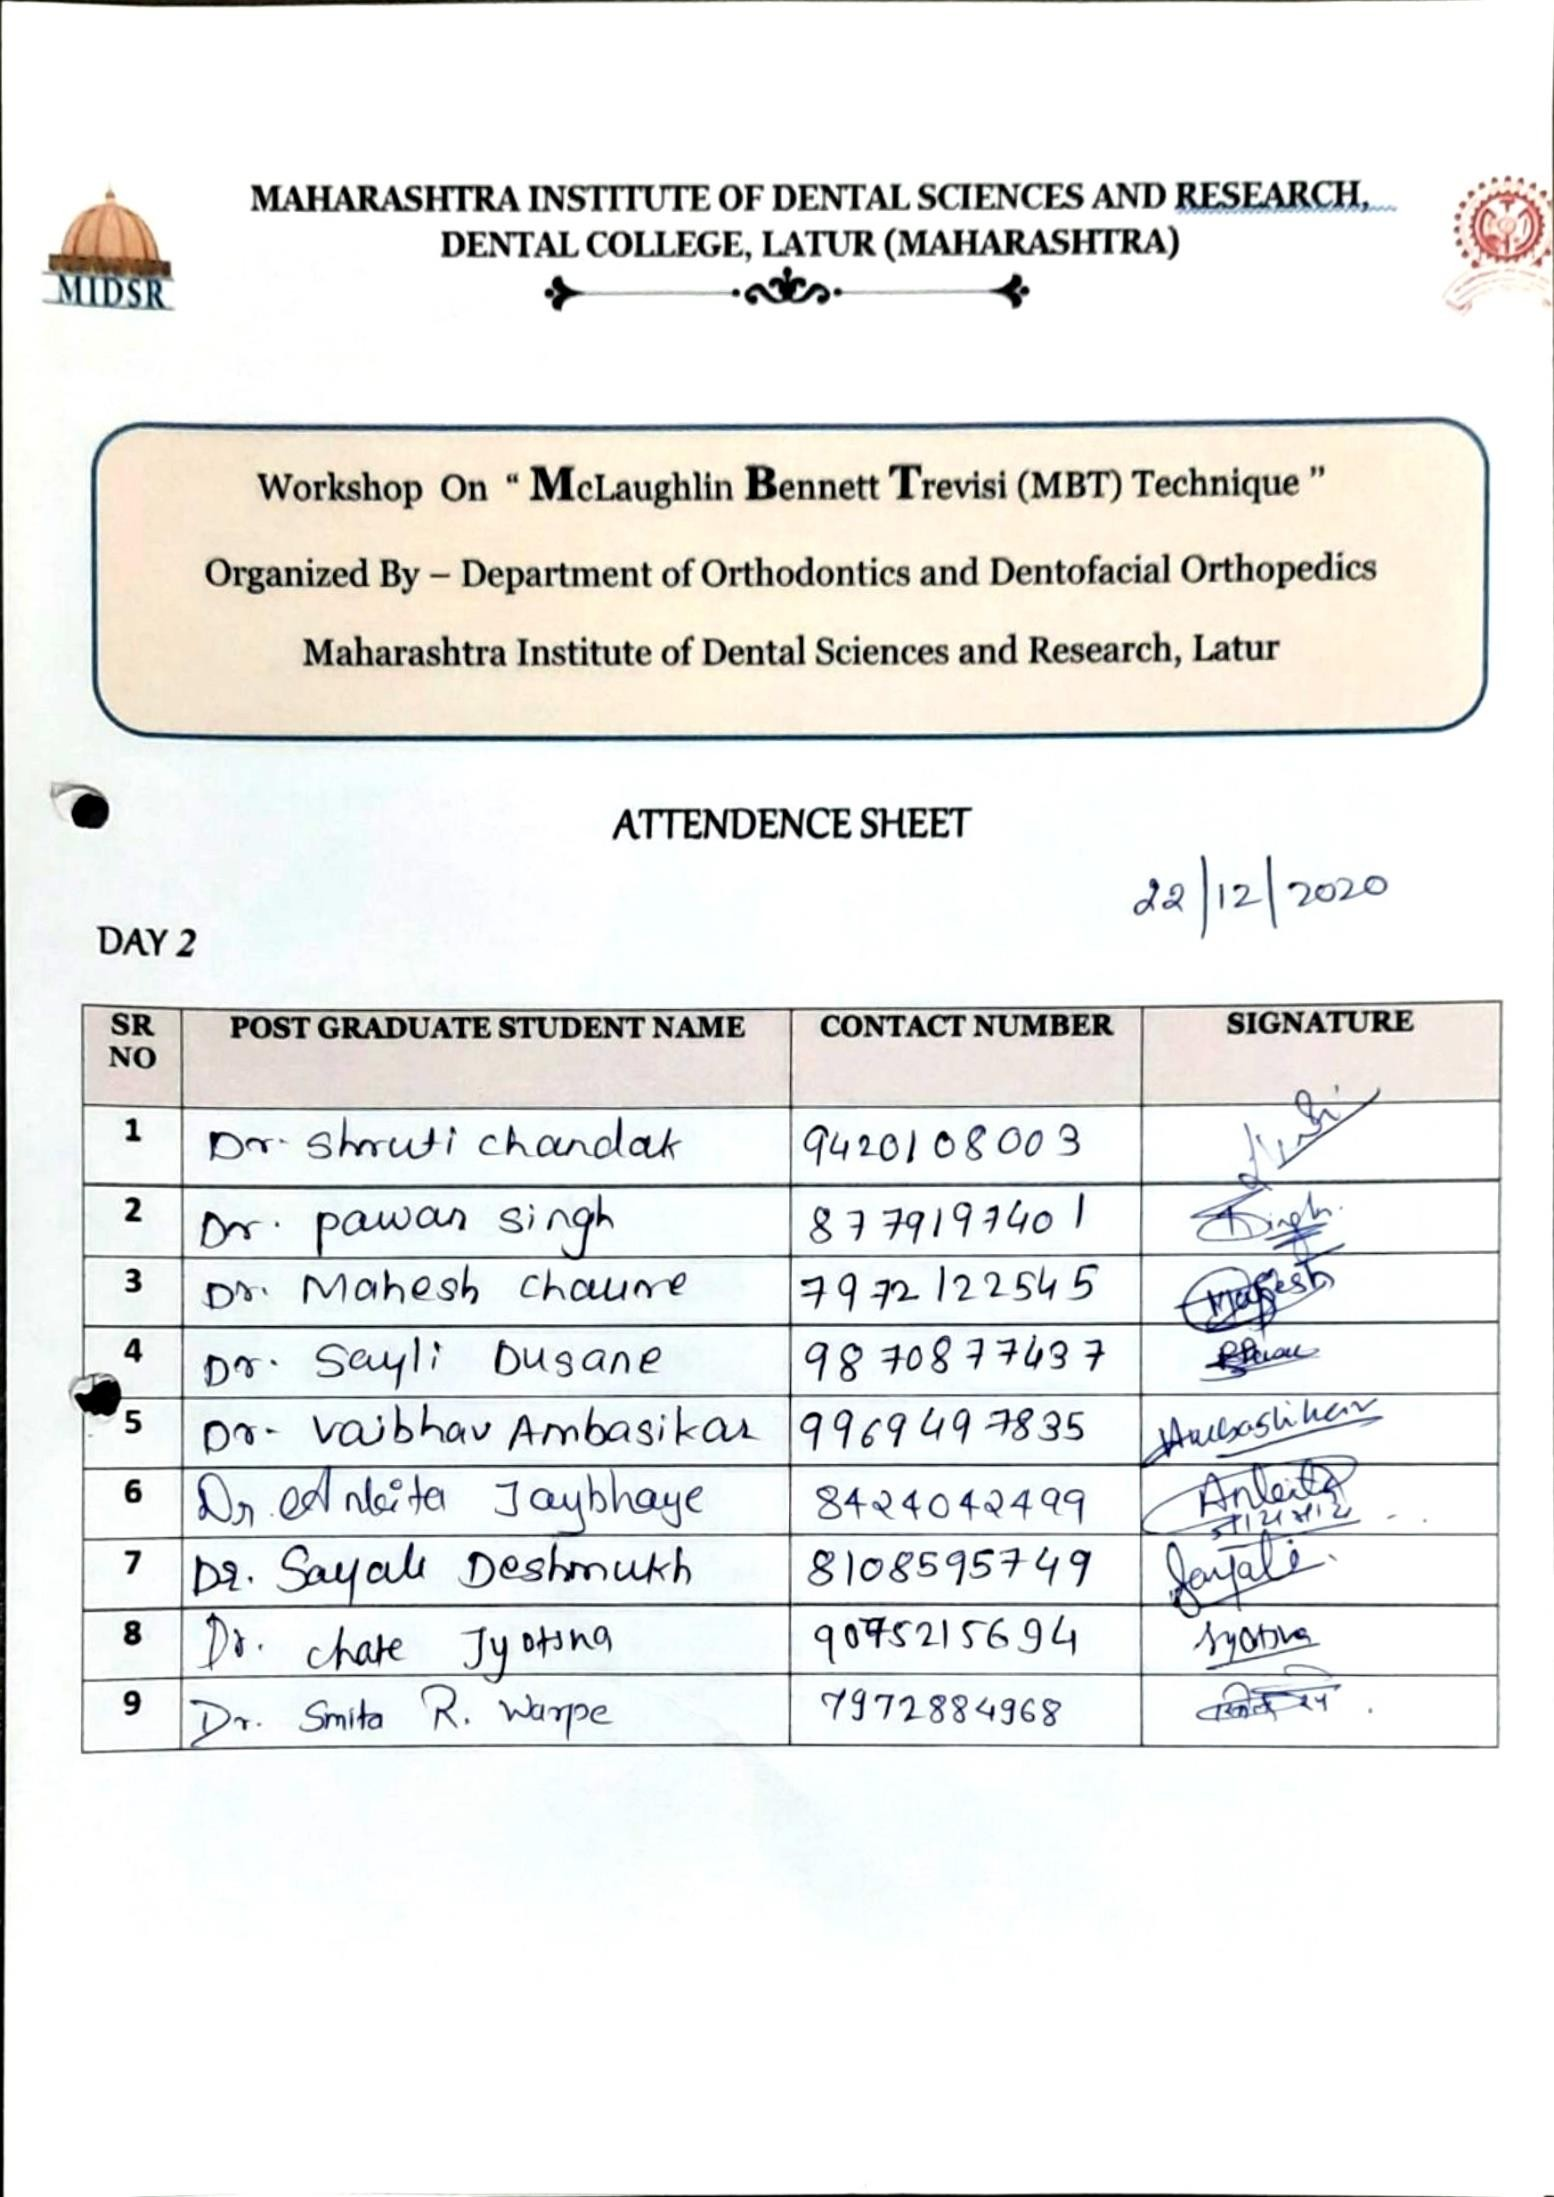 MAHARASHTRA INSTITUTE OF DENTAL SCIENCES AND RESEARCH,
DENTAL COLLEGE, LATUR (MAHARASHTRA)
MIDSR
Workshop On “ McLaughlin Bennett Trevisi (MBT) Technique ”
Organized By – Department of Orthodontics and Dentofacial Orthopedics
Maharashtra Institute of Dental Sciences and Research, Latur
ATTENDENCE SHEET
22/12/2020
DAY 2
SR NO POST GRADUATE STUDENT NAME CONTACT NUMBER SIGNATURE
1 Dr. Shruti Chandak 9420108003
2 Dr. Pawan Singh 8779197401 Singh
3 Dr. Mahesh Chaure 7972122545 Mahesh
4 Dr. Sayli Dusane 9870877437
5 Dr. Vaibhav Ambasikar 9969497835 Ambasikar
6 Dr. Ankita Jaybhaye 8424042499 Ankita
7 Dr. Sayali Deshmukh 8108595749 Sayali
8 Dr. Chate Jyotsna 9075215694 Jyotsna
9 Dr. Smita R. Warpe 7972884968